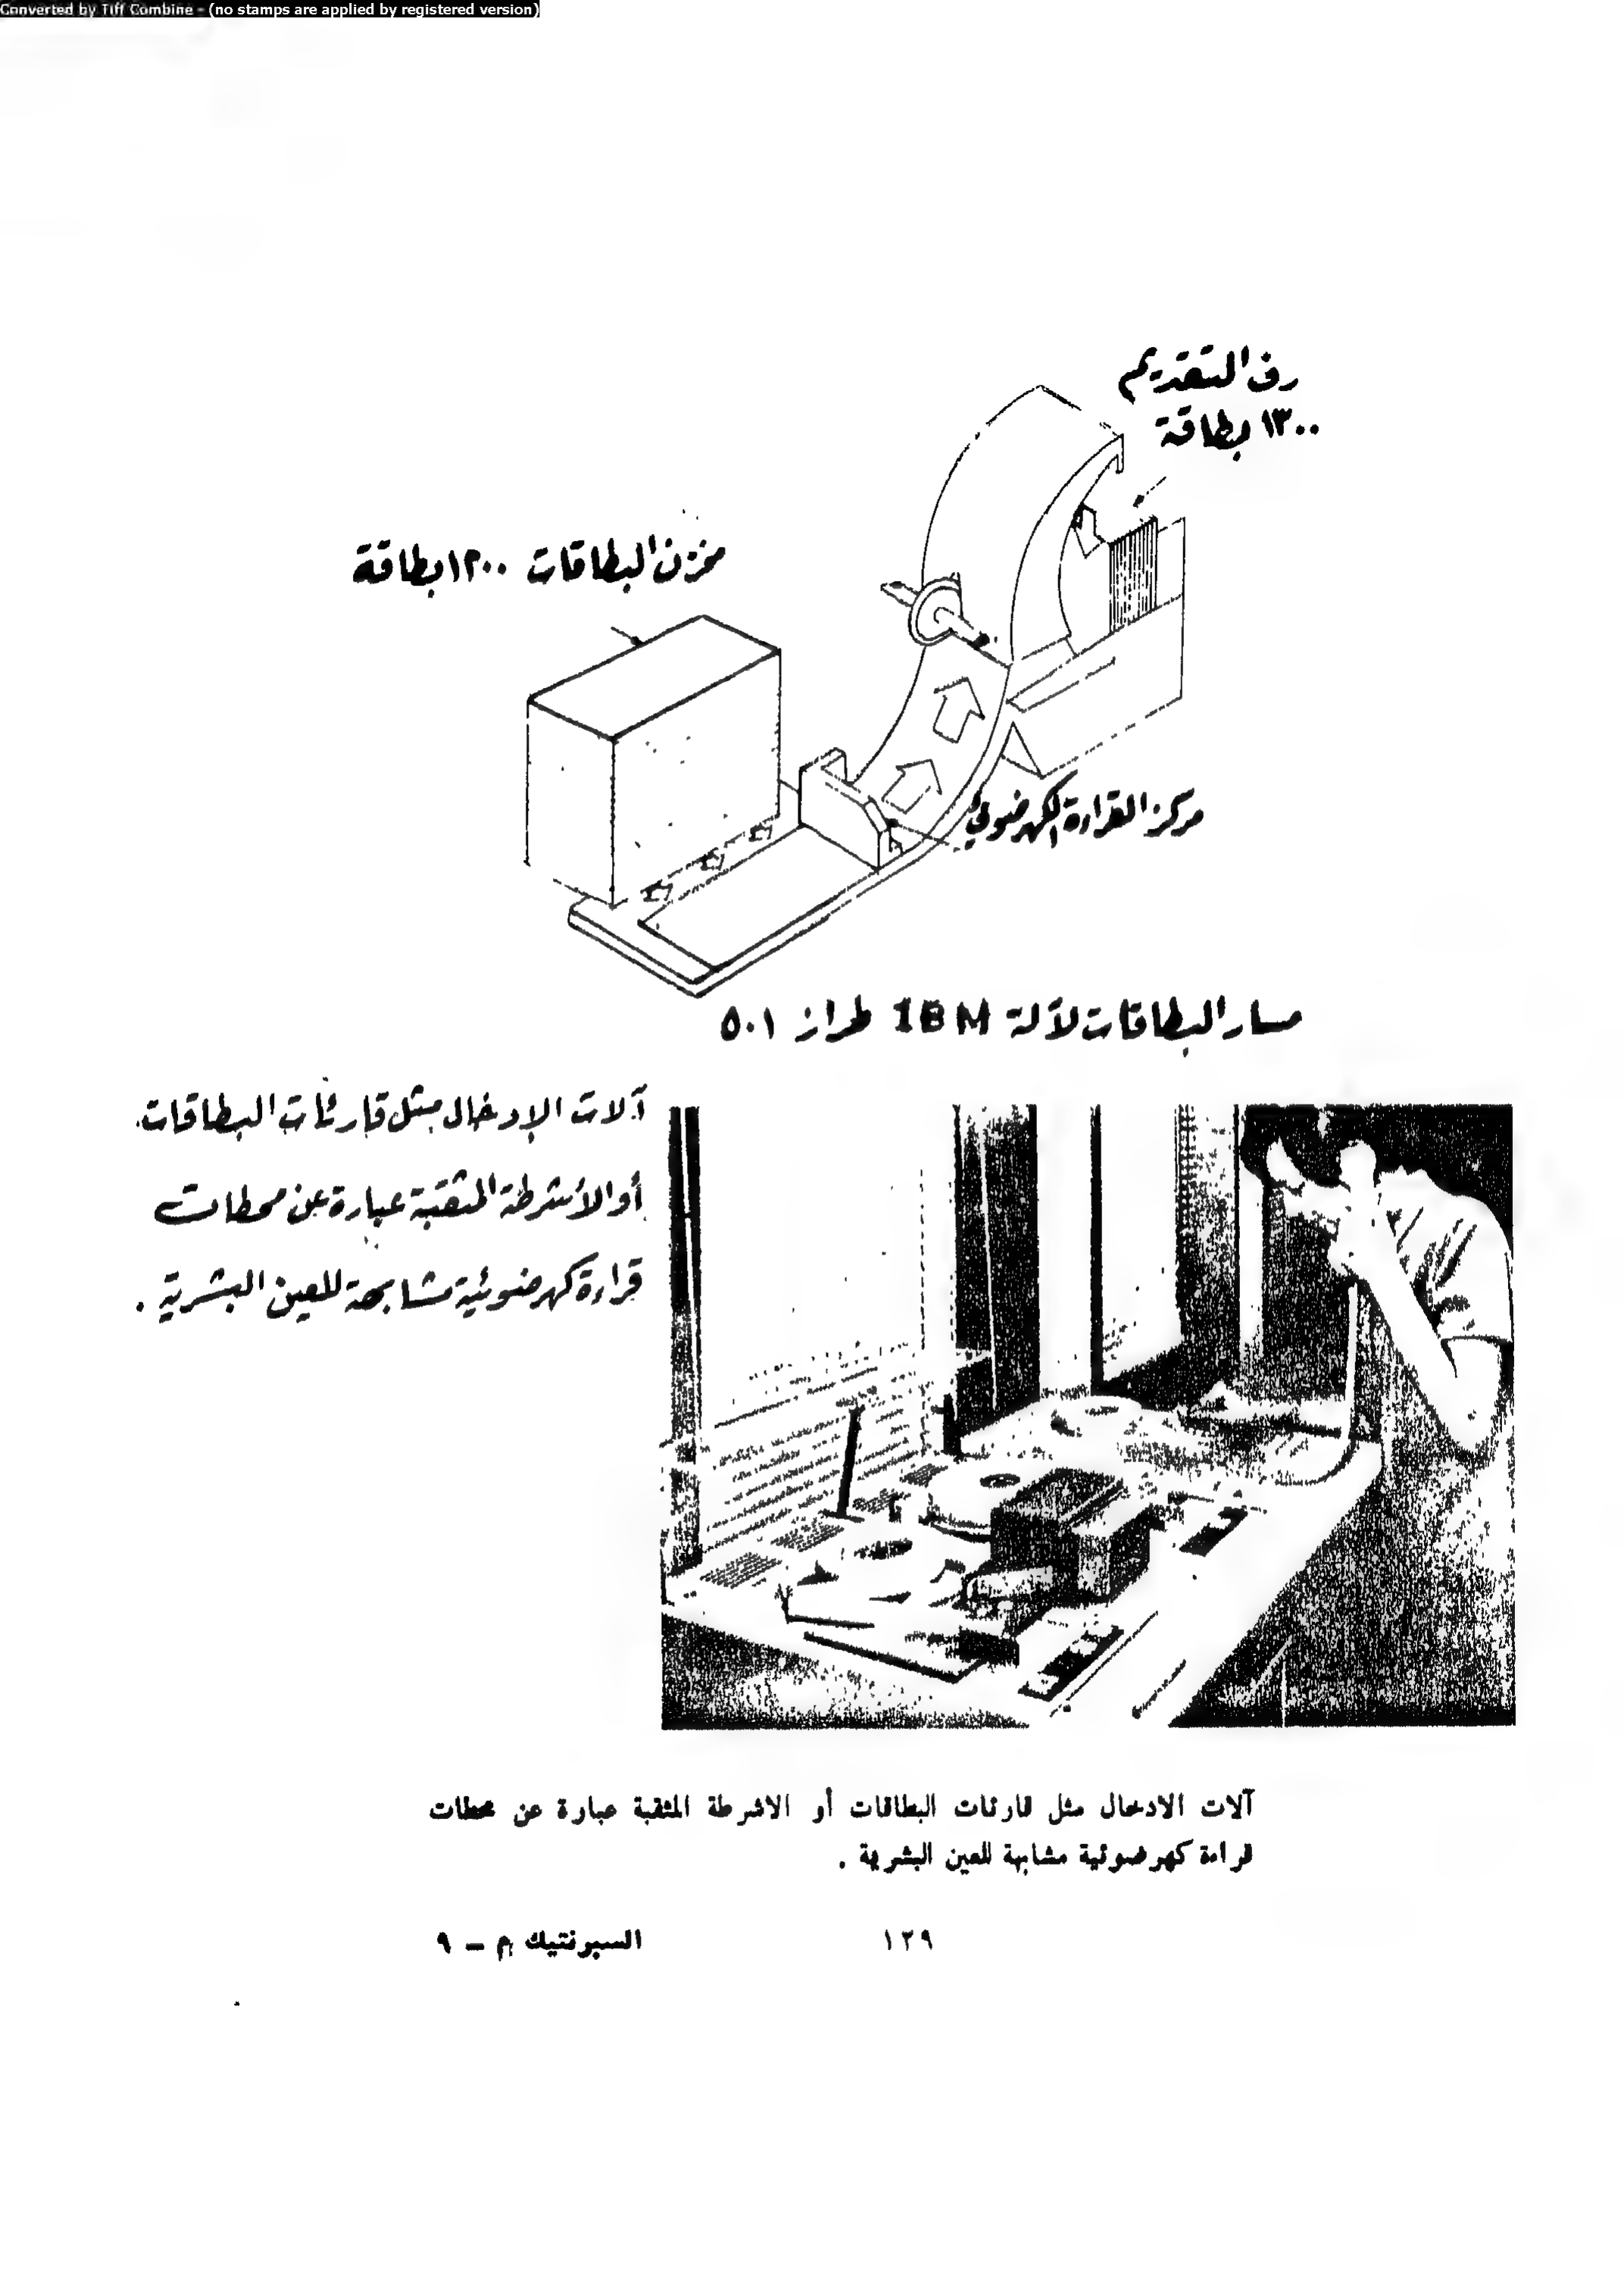 Converted by Tiff Combine - (no stamps are applied by registered version)
رف التقديم
١٣٠٠ بطاقة
مخزن البطاقات ١٢٠٠ بطاقة
مركز القراءة الكهرضوئي
مسار البطاقات لآلة IBM طراز ٥٠١
آلات الإدخال مثل قارئات البطاقات
أو الأشرطة المثقبة عبارة عن محطات
قراءة كهرضوئية مشابهة للعين البشرية .
آلات الادخال مثل قارئات البطاقات أو الاشرطة المثقبة عبارة عن محطات
قراءة كهرضوئية مشابهة للعين البشرية .
١٢٩
السبرنتيك م – ٩